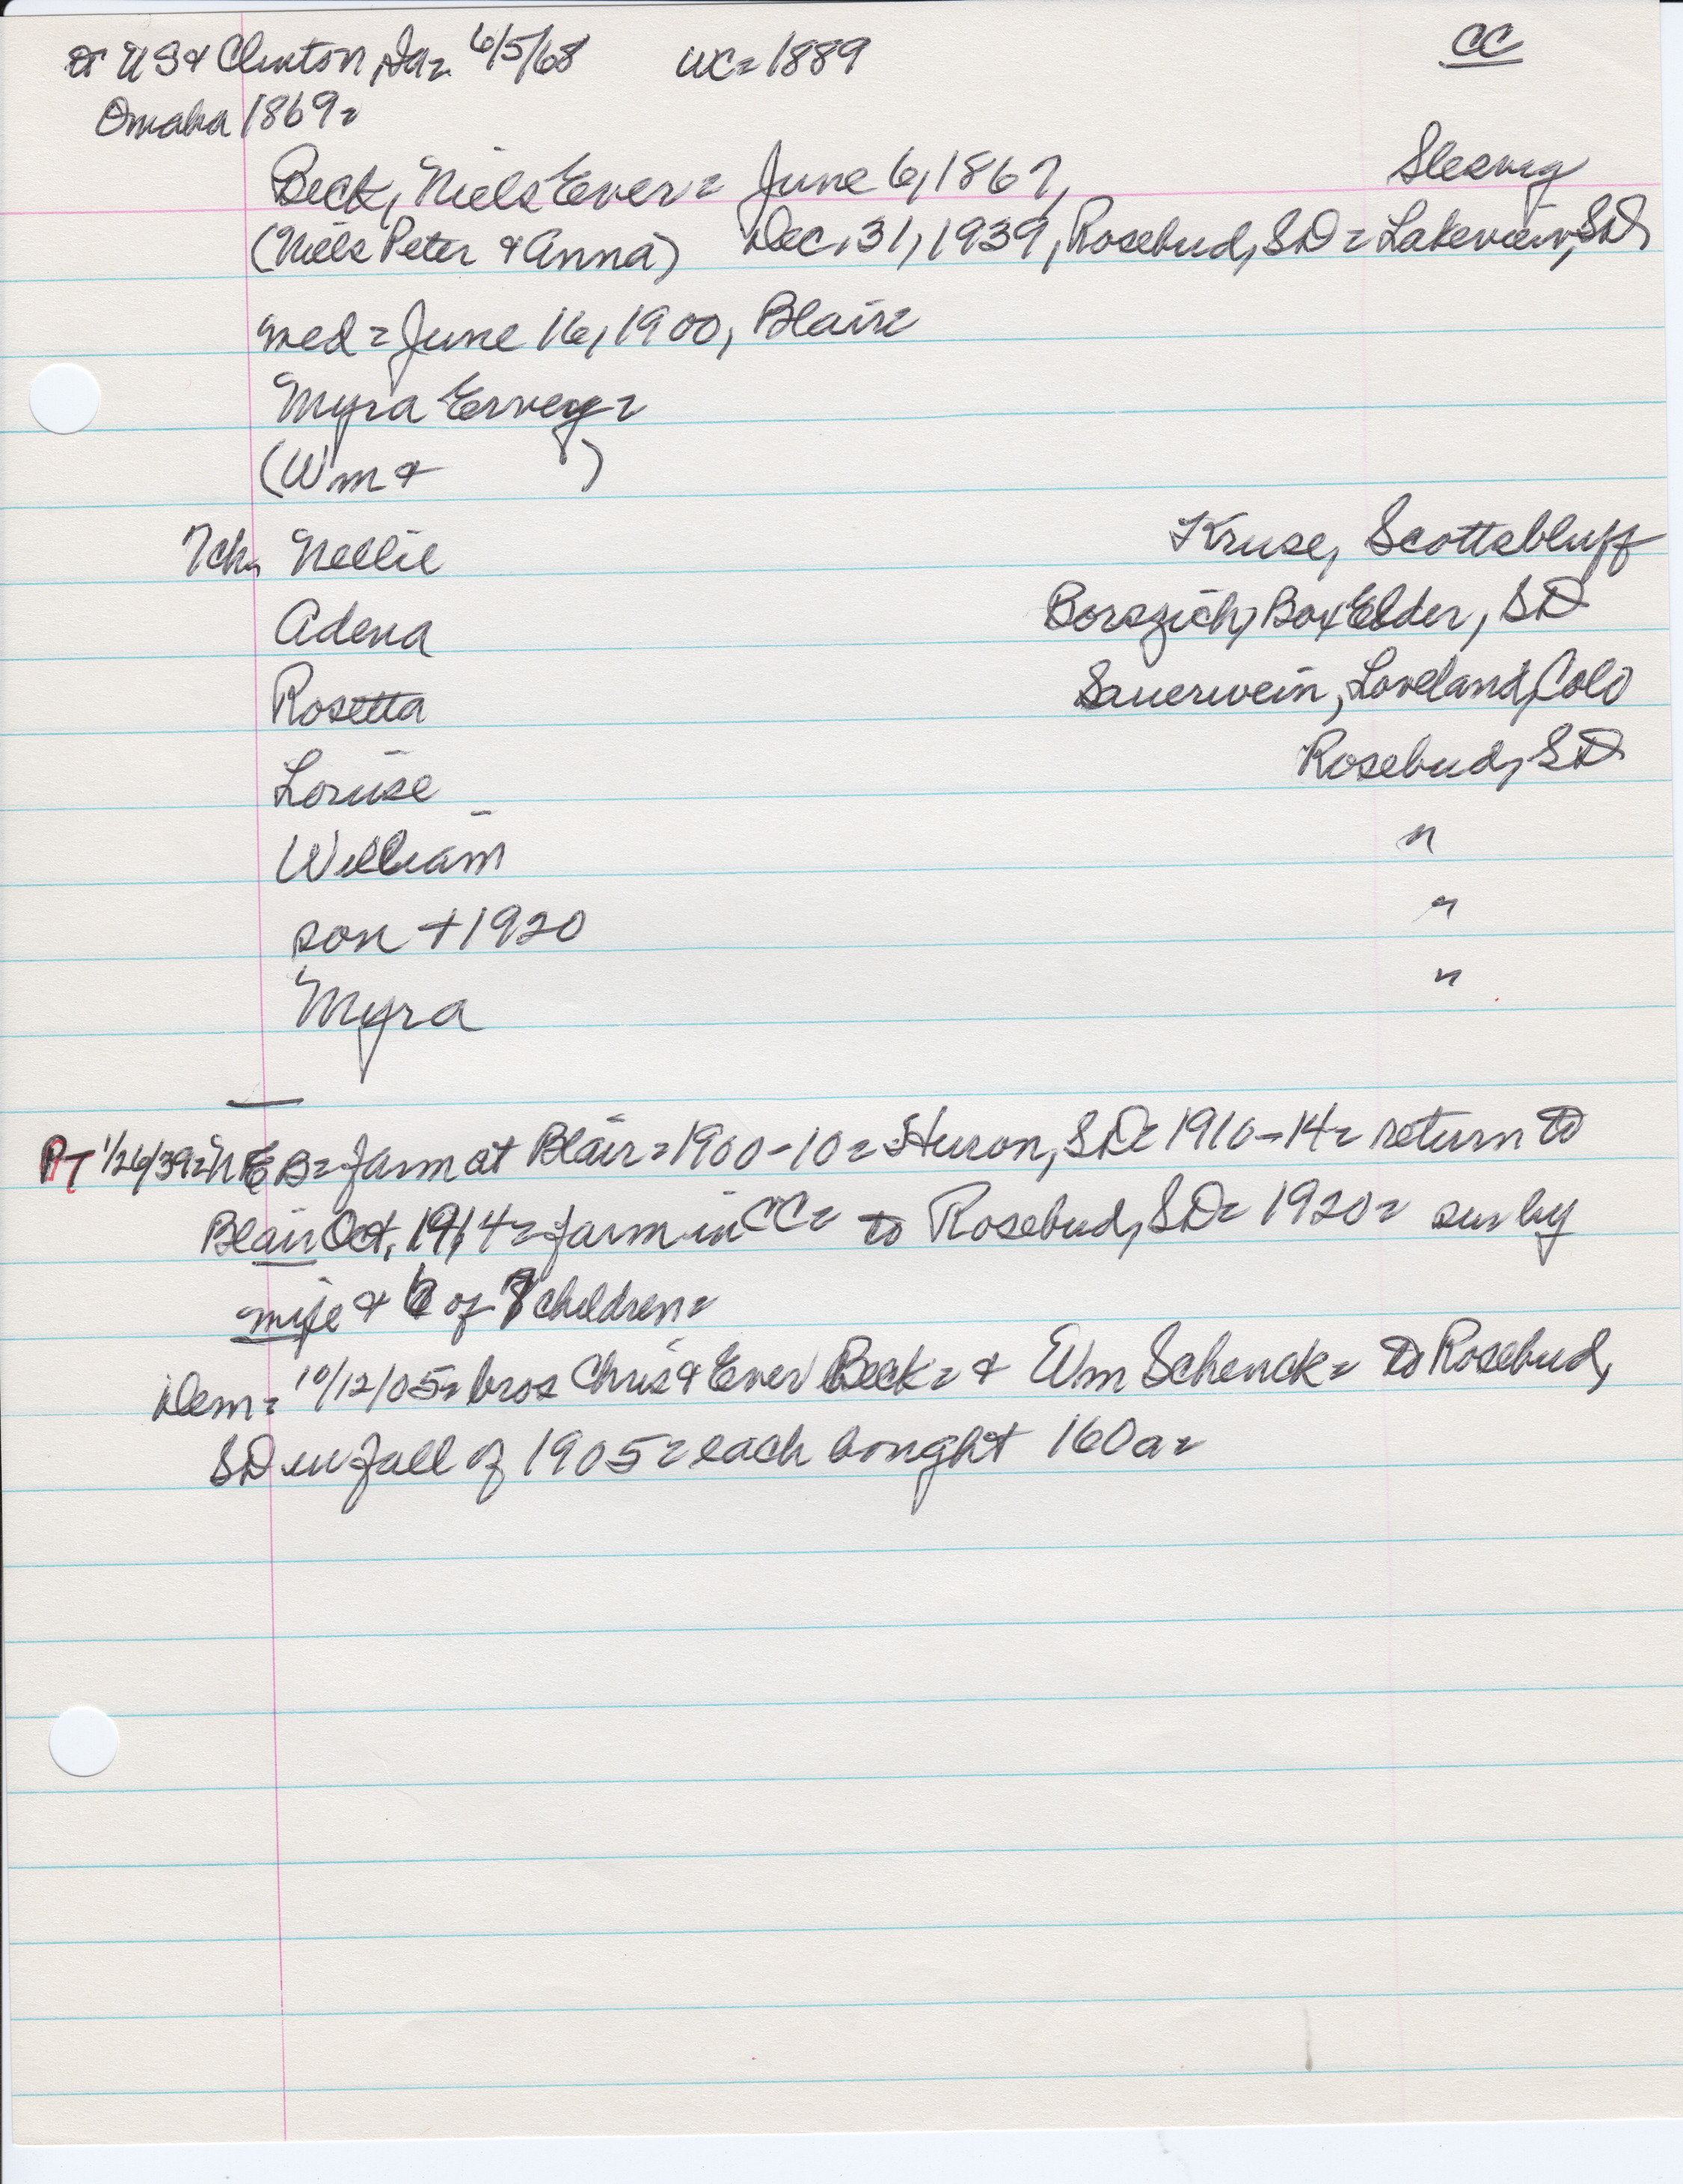 to US & Clinton, Ia= 6/5/68 WC= 1889 CC
Omaha 1869=
Beck, Niels Ever= June 6, 1867, Slesvig
(Niels Peter & Anna) Dec. 31, 1939, Rosebud, SD= Lakeview, SD,
wed= June 16, 1900, Blair=
Myra Ervey=
(Wm & )
7ch, Nellie Kruse, Scottsbluff
Adena Borszich, Box Elder, SD
Rosetta Sauerwein, Loveland, Colo
Louise Rosebud, SD
William "
son +1920 "
Myra "
PT 1/26/39= NEB= farm at Blair= 1900-10= Huron, SD= 1910-14= return to
Blair Oct, 1914= farm in CC= to Rosebud, SD= 1920= sur by
wife & 6 of 7 children=
Dem= 10/12/05= bros Chris & Ever Beck= & Wm Schenck= to Rosebud,
SD in fall of 1905= each bought 160a=